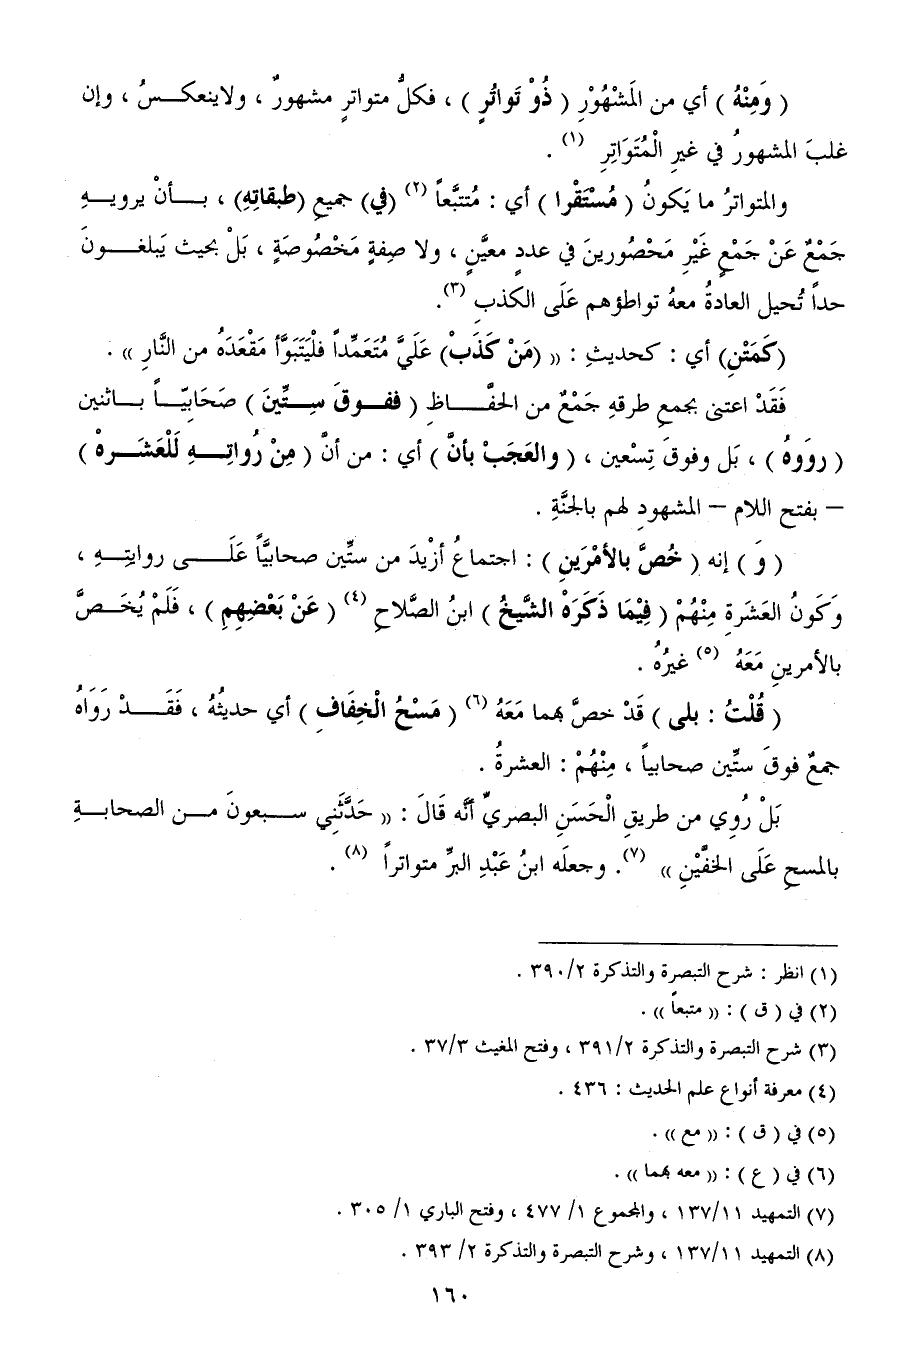 ( وَمِنْهُ ) أي من المَشْهُوْرِ ( ذُوْ تَواتُرٍ ) ، فكلُّ متواترٍ مشهورٌ ، ولاينعكسُ ، وإن
غلبَ المشهورُ في غيرِ الْمُتَوَاتِرِ (١) .
والمتواترُ ما يَكونُ ( مُسْتَقْرا ) أي : مُتتبَّعاً (٢) (في) جميعِ (طبقاتِهِ) ، بأنْ يرويهِ
جَمْعٌ عَنْ جَمْعٍ غَيْرِ مَحْصُورينَ في عددٍ معيَّنٍ ، ولا صِفةٍ مَخْصُوصَةٍ ، بَلْ بحيث يَبلغونَ
حداً تُحيل العادةُ معهُ تواطؤهم عَلَى الكذبِ (٣).
(كَمَتْنِ) أي : كحديثِ : « (مَنْ كَذَبْ) عَلَيَّ مُتَعَمِّداً فلْيَتَبَوَّأ مَقْعَدَهُ من النَّارِ » .
فَقَدْ اعتنى بجمعِ طرقهِ جَمْعٌ من الحفَّاظِ ( ففوقَ سِتِّينَ ) صَحَابِيّاً باثنين
( روَوهُ ) ، بَل وفوقَ تِسْعين ، ( والعَجَبْ بأنَّ ) أي : من أنَّ ( مِنْ رُواتِهِ لَلْعَشَرهْ )
– بفتح اللام – المشهودِ لهم بالجنَّةِ .
( وَ ) إنه ( خُصَّ بالأمْرَينِ ) : اجتماعُ أزْيدَ من ستِّين صحابيَّاً عَلَى روايتِهِ ،
وَكَونُ العَشَرَةِ مِنْهُمْ ( فِيْمَا ذَكَرَهْ الشَّيخُ ) ابنُ الصَّلاحِ (٤) ( عَنْ بَعْضِهِمِ ) ، فَلَمْ يُخَصَّ
بالأمرينِ مَعَهُ (٥) غيرُهُ .
( قُلْتُ : بلى ) قَدْ خصَّ بهما مَعَهُ (٦) ( مَسْحُ الْخِفَافِ ) أي حديثُهُ ، فَقَدْ رَوَاهُ
جمعٌ فوقَ ستِّين صحابياً ، مِنْهُمْ : العشرةُ .
بَلْ رُوِي من طريقِ الْحَسَنِ البصريِّ أنَّه قَالَ : « حَدَّثَني سبعونَ من الصحابةِ
بالمسحِ عَلَى الخفَّيْنِ » (٧). وجعلَه ابنُ عَبْدِ البرِّ متواتراً (٨) .
(١) انظر : شرح التبصرة والتذكرة ٣٩٠/٢ .
(٢) في ( ق ) : « متبعاً » .
(٣) شرح التبصرة والتذكرة ٣٩١/٢ ، وفتح المغيث ٣٧/٣ .
(٤) معرفة أنواع علم الحديث : ٤٣٦ .
(٥) في ( ق ) : « مع » .
(٦) في ( ع ) : « معه بهما » .
(٧) التمهيد ١٣٧/١١ ، والمجموع ١/ ٤٧٧ ، وفتح الباري ١/ ٣٠٥ .
(٨) التمهيد ١٣٧/١١ ، وشرح التبصرة والتذكرة ٢/ ٣٩٣ .
١٦٠